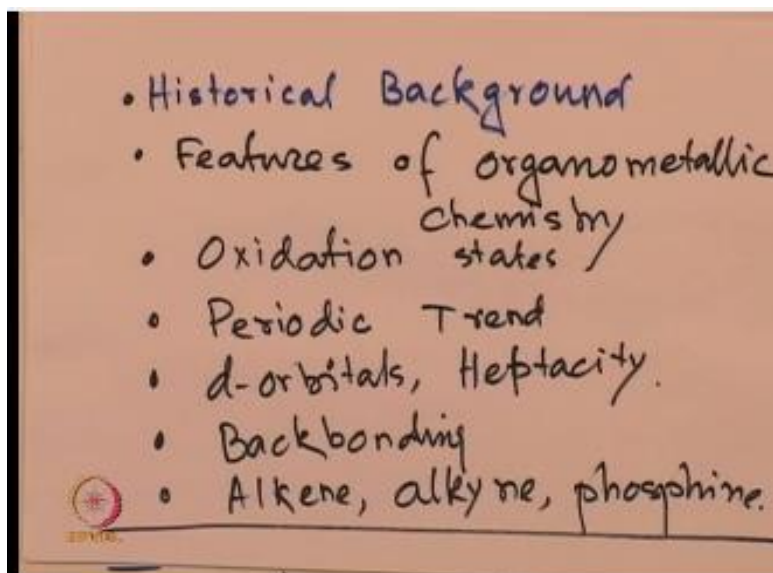 • Historical Background
• Features of organometallic
chemistry
• Oxidation states
• Periodic Trend
• d-orbitals, Heptacity.
• Backbonding
• Alkene, alkyne, phosphine.